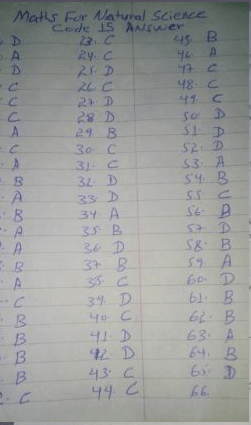 Maths For Natural Science
Code 15 Answer
D 23. C 45. B
A 24. C 46. A
D 25. D 47. C
C 26. C 48. C
C 27. D 49. C
C 28. D 50. D
A 29. B 51. D
C 30. C 52. D
A 31. C 53. A
B 32. D 54. B
A 33. D 55. C
B 34. A 56.
A 35. B 57. D
A 36. D 58. B
B 37. B 59. A
A 38. C 60. D
C 39. D 61. B
B 40. C 62. B
B 41. D 63. A
B 42. D 64. B
B 43. C 65. D
C 44. C 66.